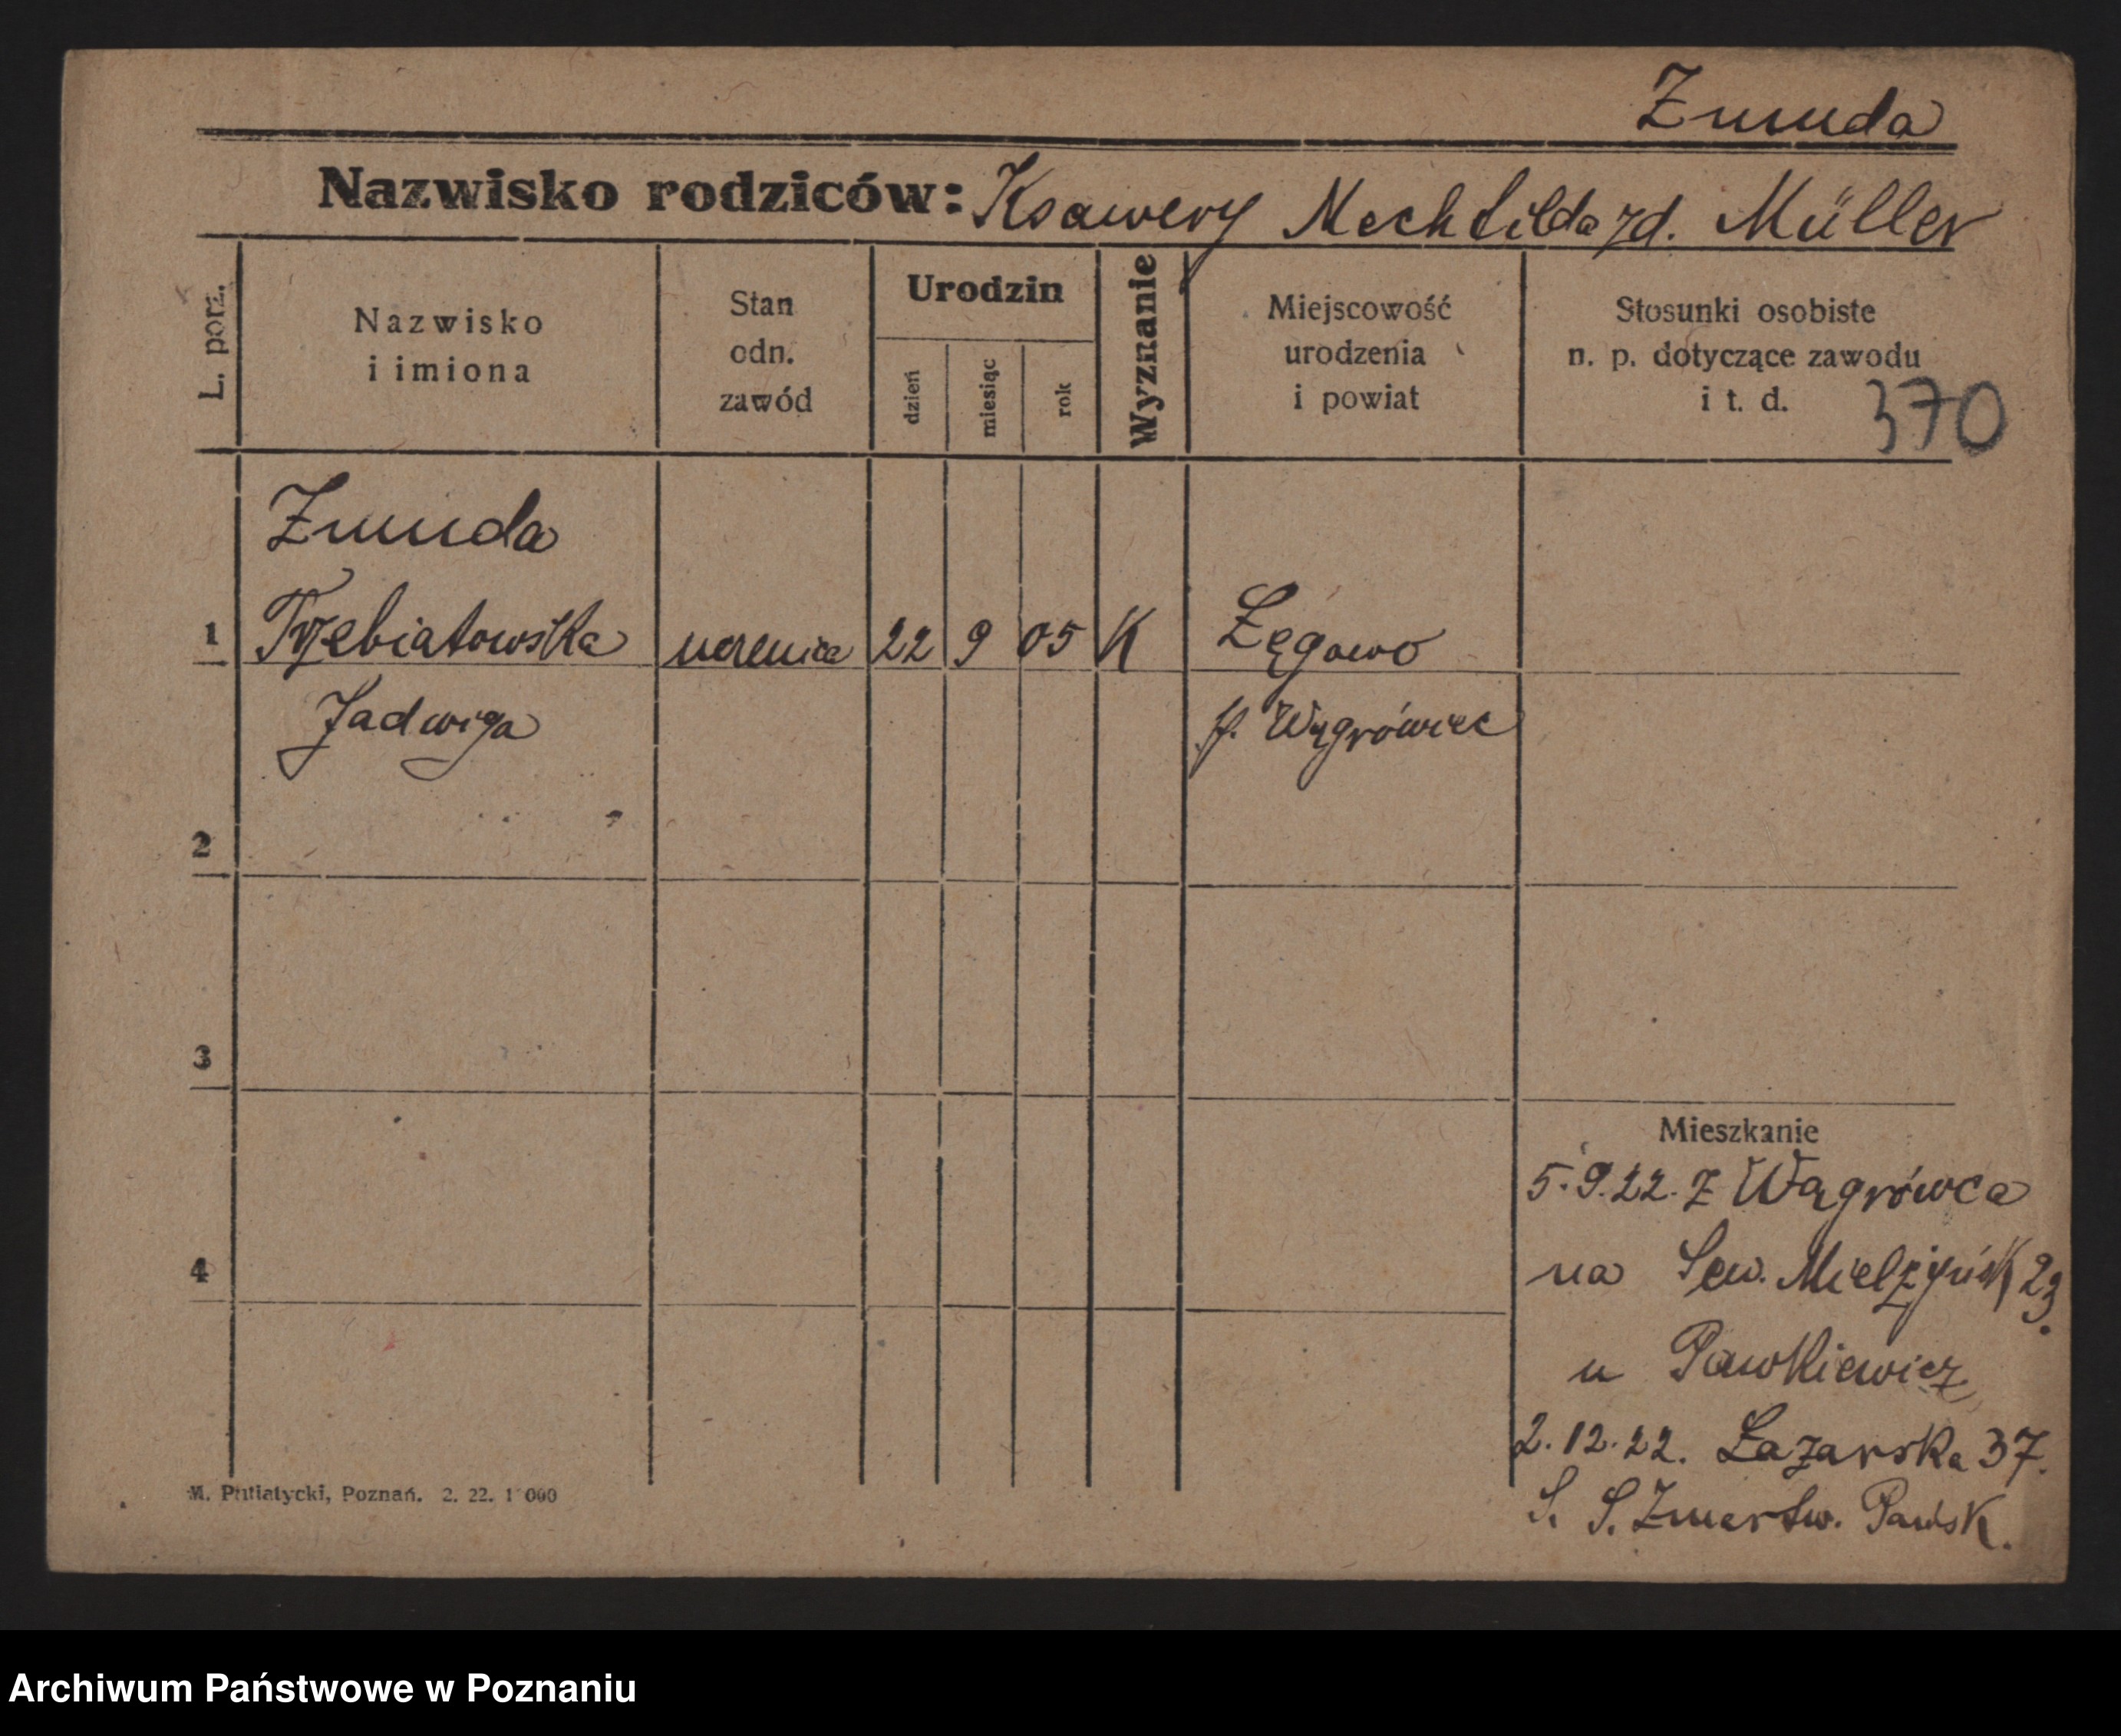 Zmuda
Nazwisko rodziców: Ksawery Mechtilda zd. Müller
L. porz.
Nazwisko i imiona
Stan odn. zawód
Urodzin
dzień
miesiąc
rok
Wyznanie
Miejscowość urodzenia i powiat
Stosunki osobiste n. p. dotyczące zawodu i t. d.
370
Zmuda
1 Trzebiatowska uczenica 22 9 05 K Łęgowo
Jadwiga p. Wągrówiec
2
3
Mieszkanie
5.9.22. z Wągrówca
4
na Sew. Mielżyńsk 23.
u Pawkiewicz
2.12.22. Łazarska 37.
S. S. Zmartw. Pańsk.
M. Putiatycki, Poznań. 2. 22. 1 000
Archiwum Państwowe w Poznaniu